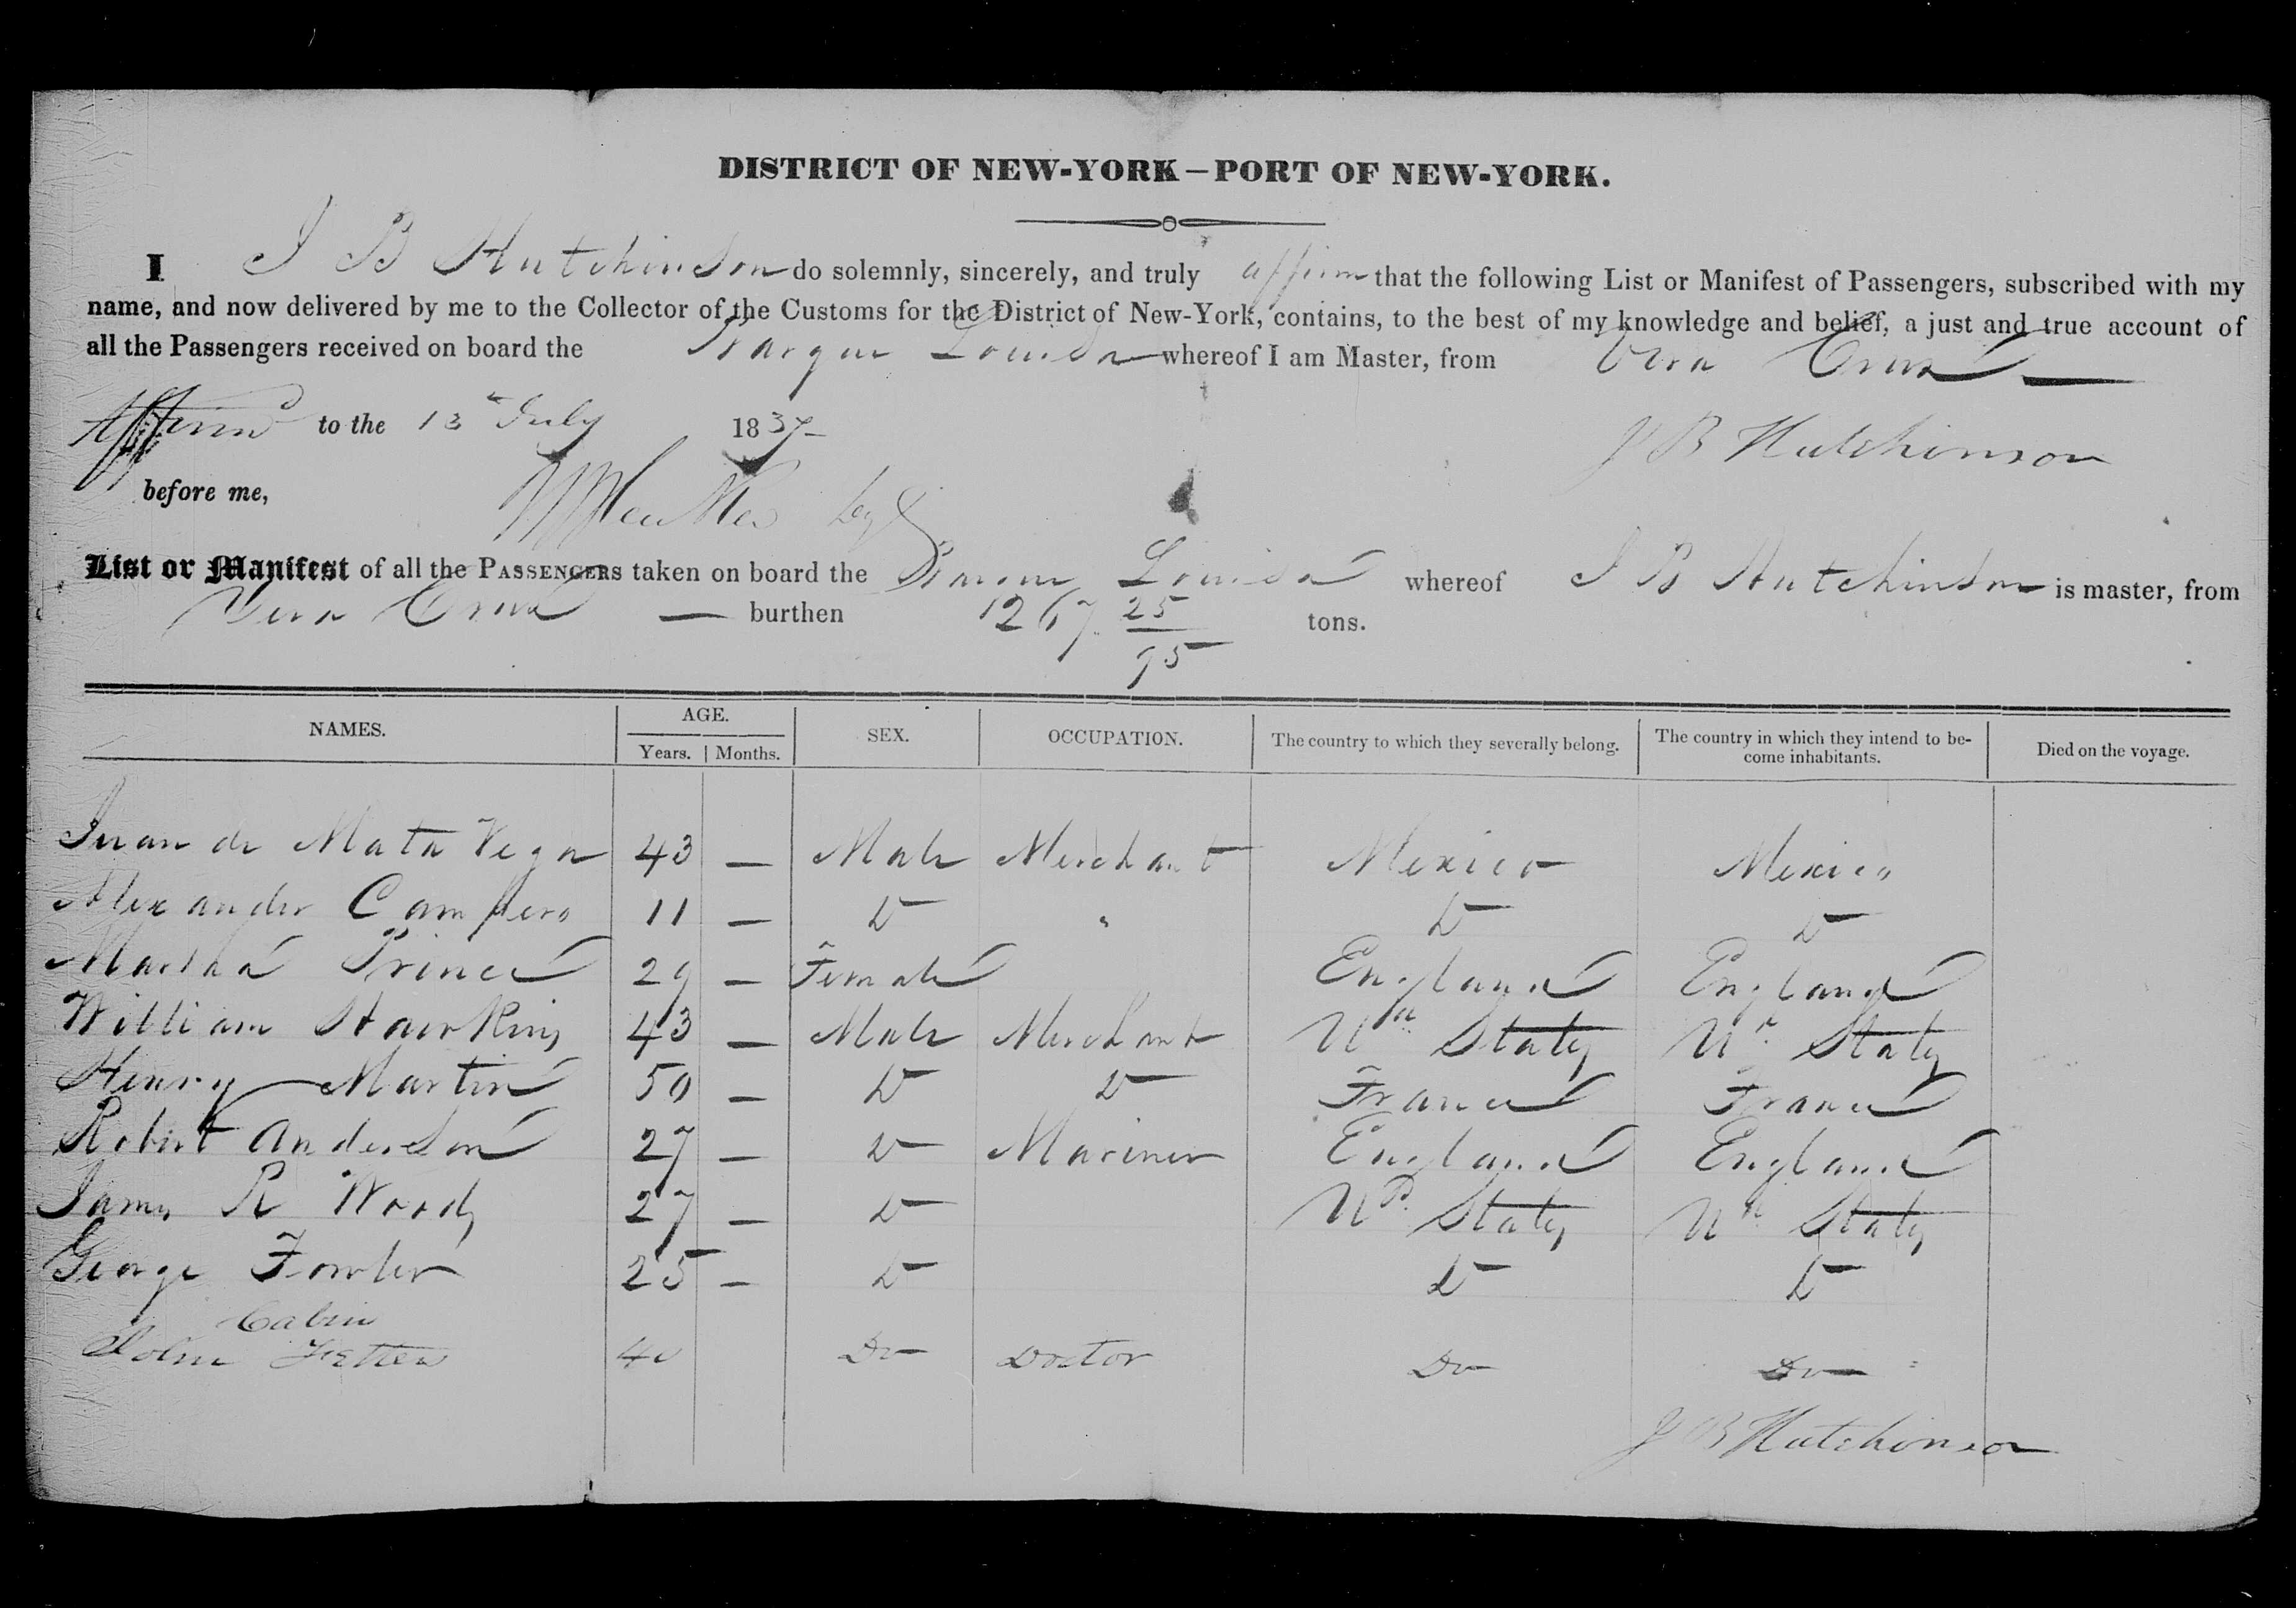 DISTRICT OF NEW-YORK—PORT OF NEW-YORK.
I J B Hutchinson do solemnly, sincerely, and truly affirm that the following List or Manifest of Passengers, subscribed with my
name, and now delivered by me to the Collector of the Customs for the District of New-York, contains, to the best of my knowledge and belief, a just and true account of
all the Passengers received on board the Barque Louisa whereof I am Master, from Vera Cruz
Affirmd to the 13th July 1837
J B Hutchinson
before me,
List or Manifest of all the PASSENGERS taken on board the Barque Louisa whereof J B Hutchinson is master, from
Vera Cruz — burthen 267 25/95 tons.
NAMES. AGE. SEX. OCCUPATION. The country to which they severally belong. The country in which they intend to be- Died on the voyage.
Years. Months. come inhabitants.
Juan de Mata Vega 43 — Male Merchant Mexico Mexico
Alexander Campero 11 — Do " Do Do
Martha Prince 29 — Female England England
William Hawkins 43 — Male Merchant Ud States Ud States
Henry Martin 50 — Do Do France France
Robert Anderson 27 — Do Mariner England England
James R Woods 27 — Do Ud States Ud States
George Fowler 25 — Do Do Do
Cabin
John 40 Do Doctor Do Do
J B Hutchinson